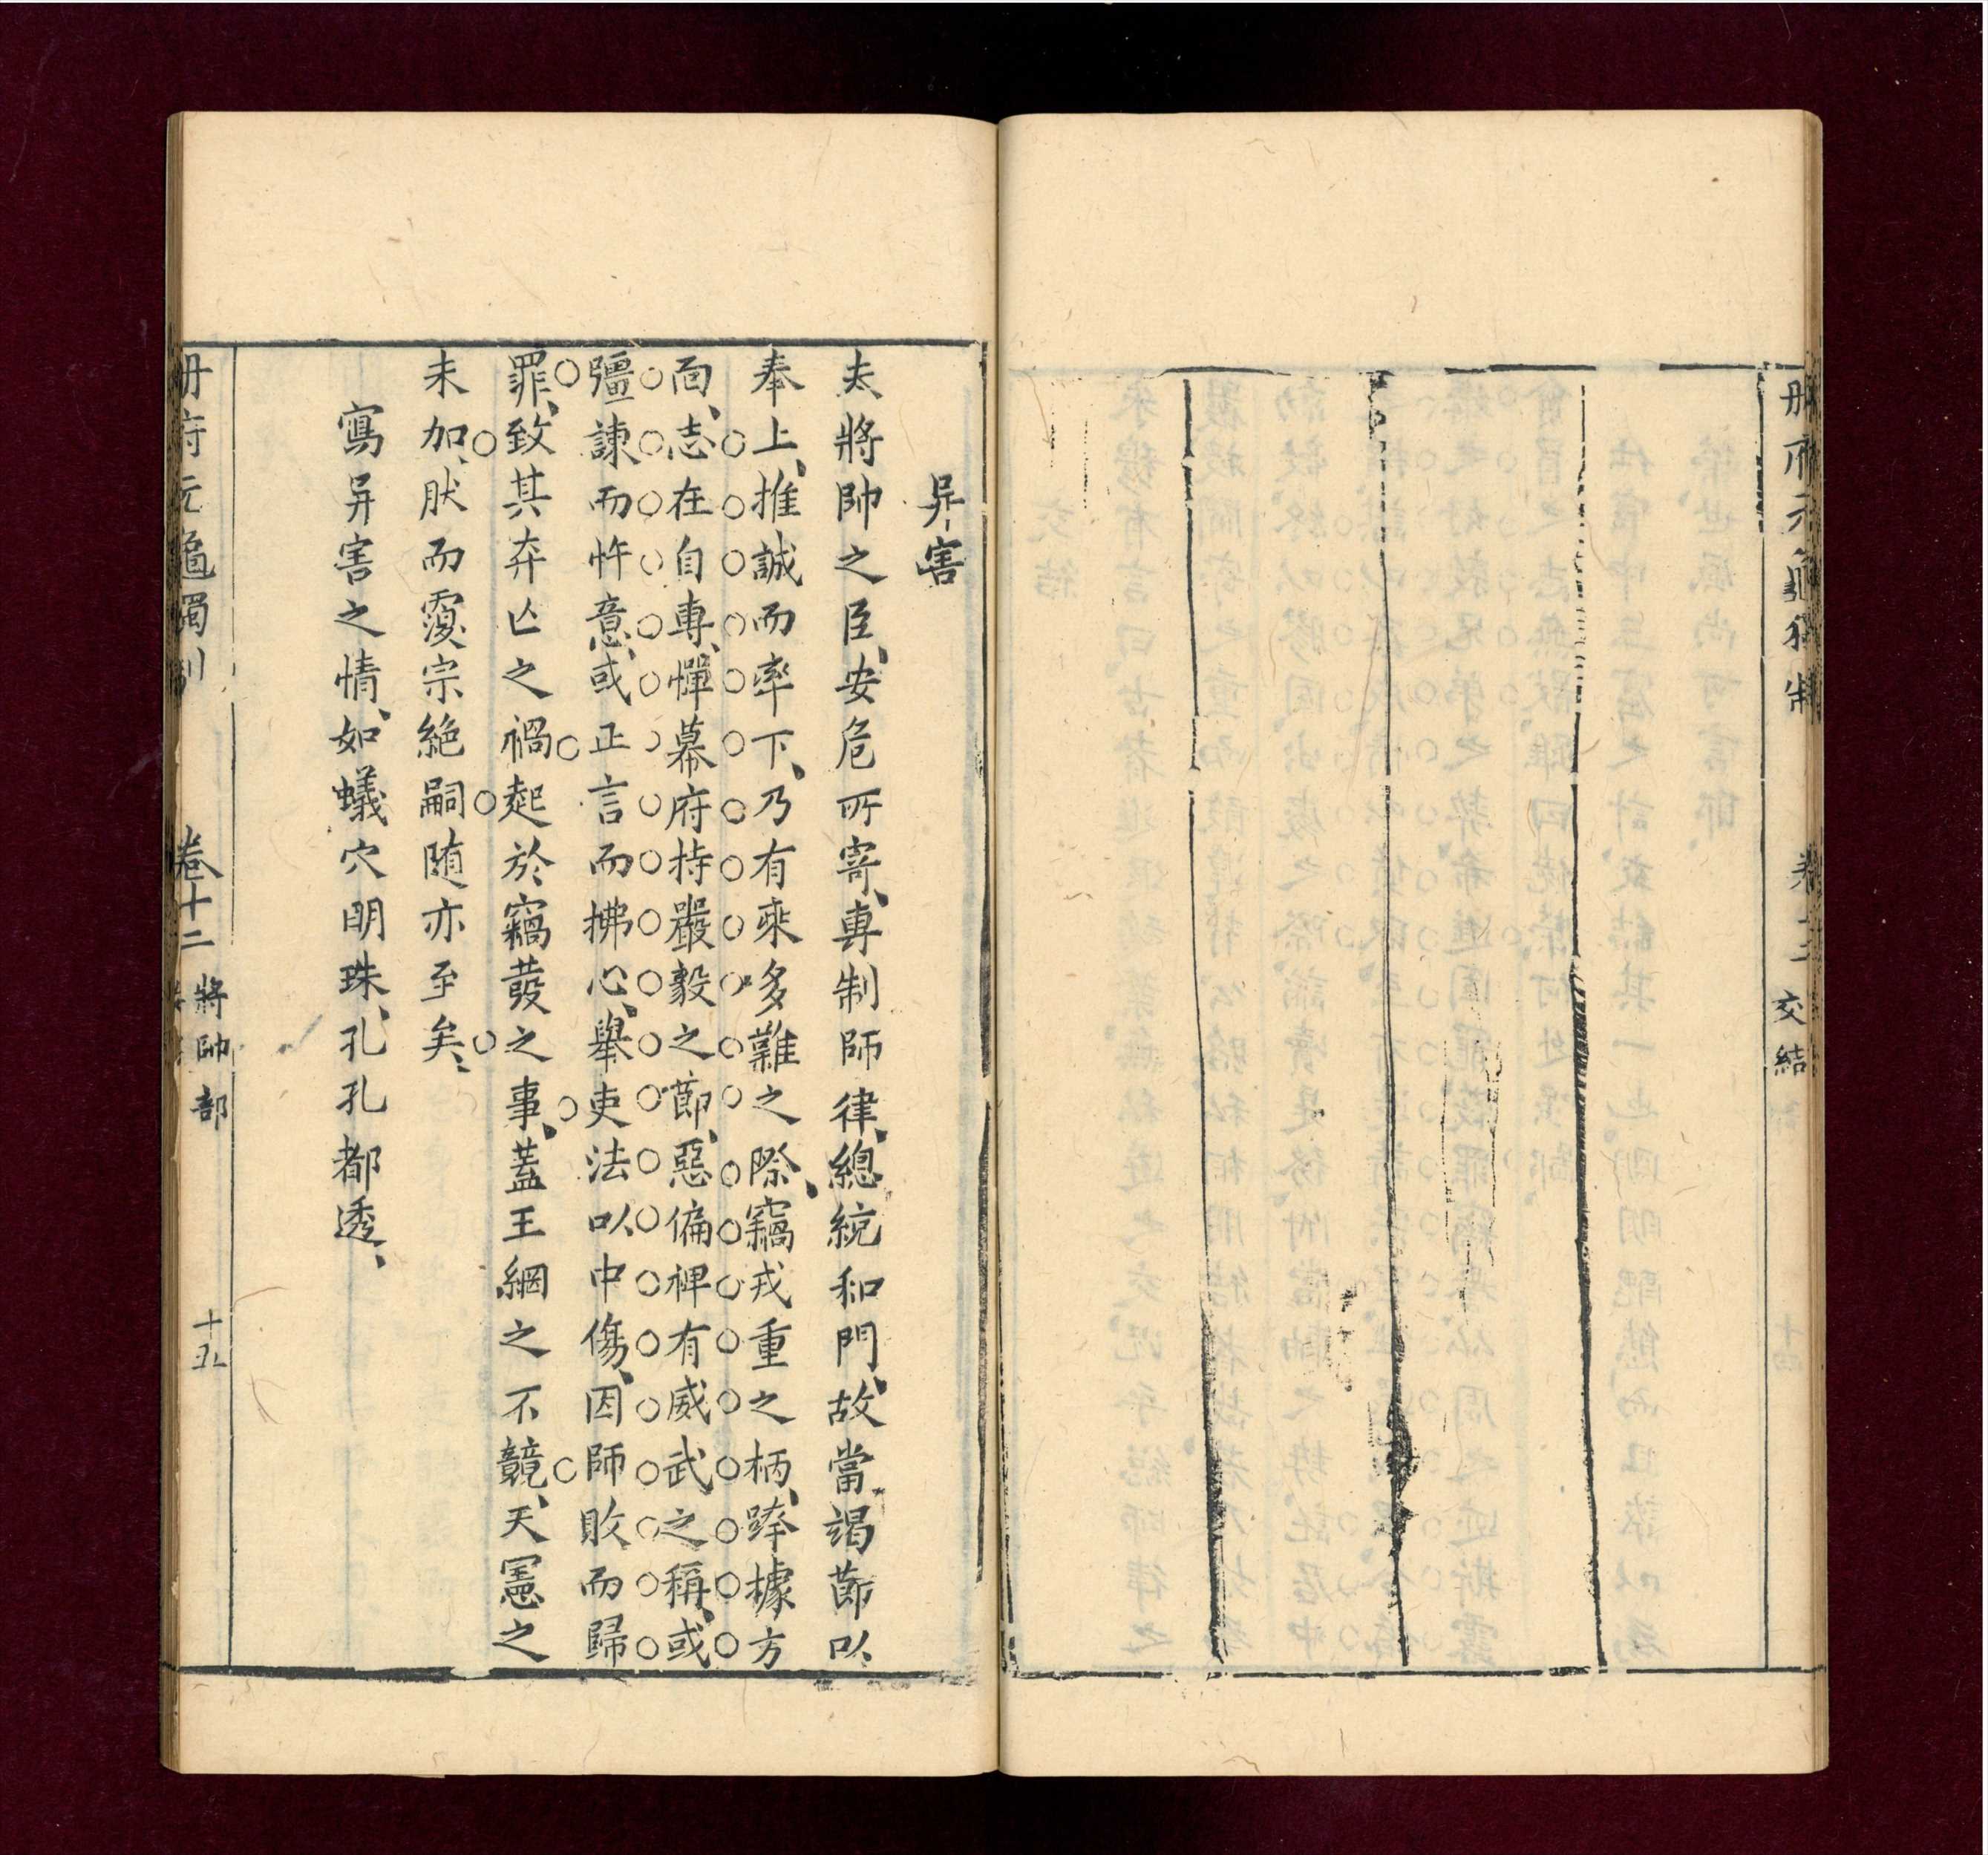 册府元龜獨制
卷十二
交結
异害
夫將帥之臣、安危所寄、專制師律、總統和門、故當竭節以
奉上、推誠而率下、乃有乘多難之際、竊戎重之柄、跨據方
面、志在自專、憚幕府持嚴毅之節、惡偏裨有威武之稱、或
彊諫而忤意、或正言而拂心、舉吏法以中傷、因師敗而歸
罪、致其弃亡之禍起於竊發之事、蓋王綱之不競、天憲之
未加、肰而覆宗絶嗣随亦至矣、
寫异害之情、如蟻穴明珠、孔孔都透、
册府元龜獨制
卷十二
將帥部
十五